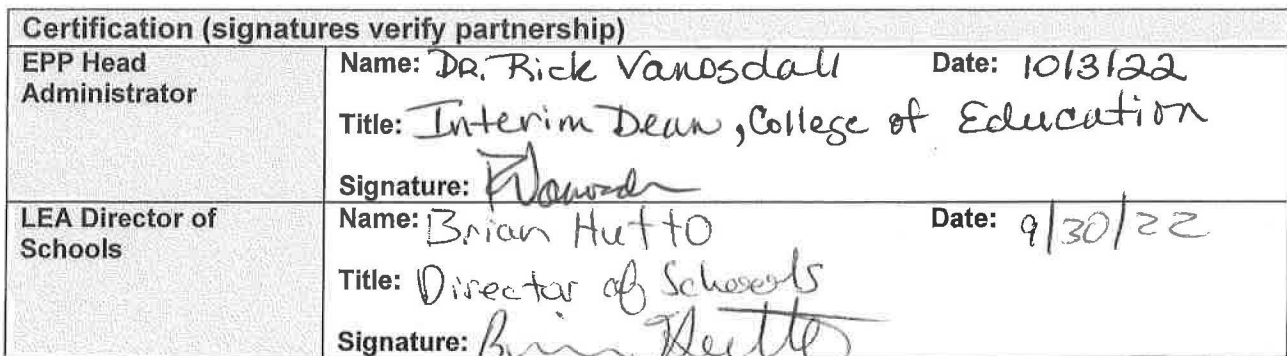 Certification (signatures verify partnership)
EPP Head Administrator
Name: DR. Rick Vanosdall Date: 10/3/22
Title: Interim Dean, College of Education
Signature:
LEA Director of Schools
Name: Brian Hutto Date: 9/30/22
Title: Director of Schools
Signature: Brian Hutto